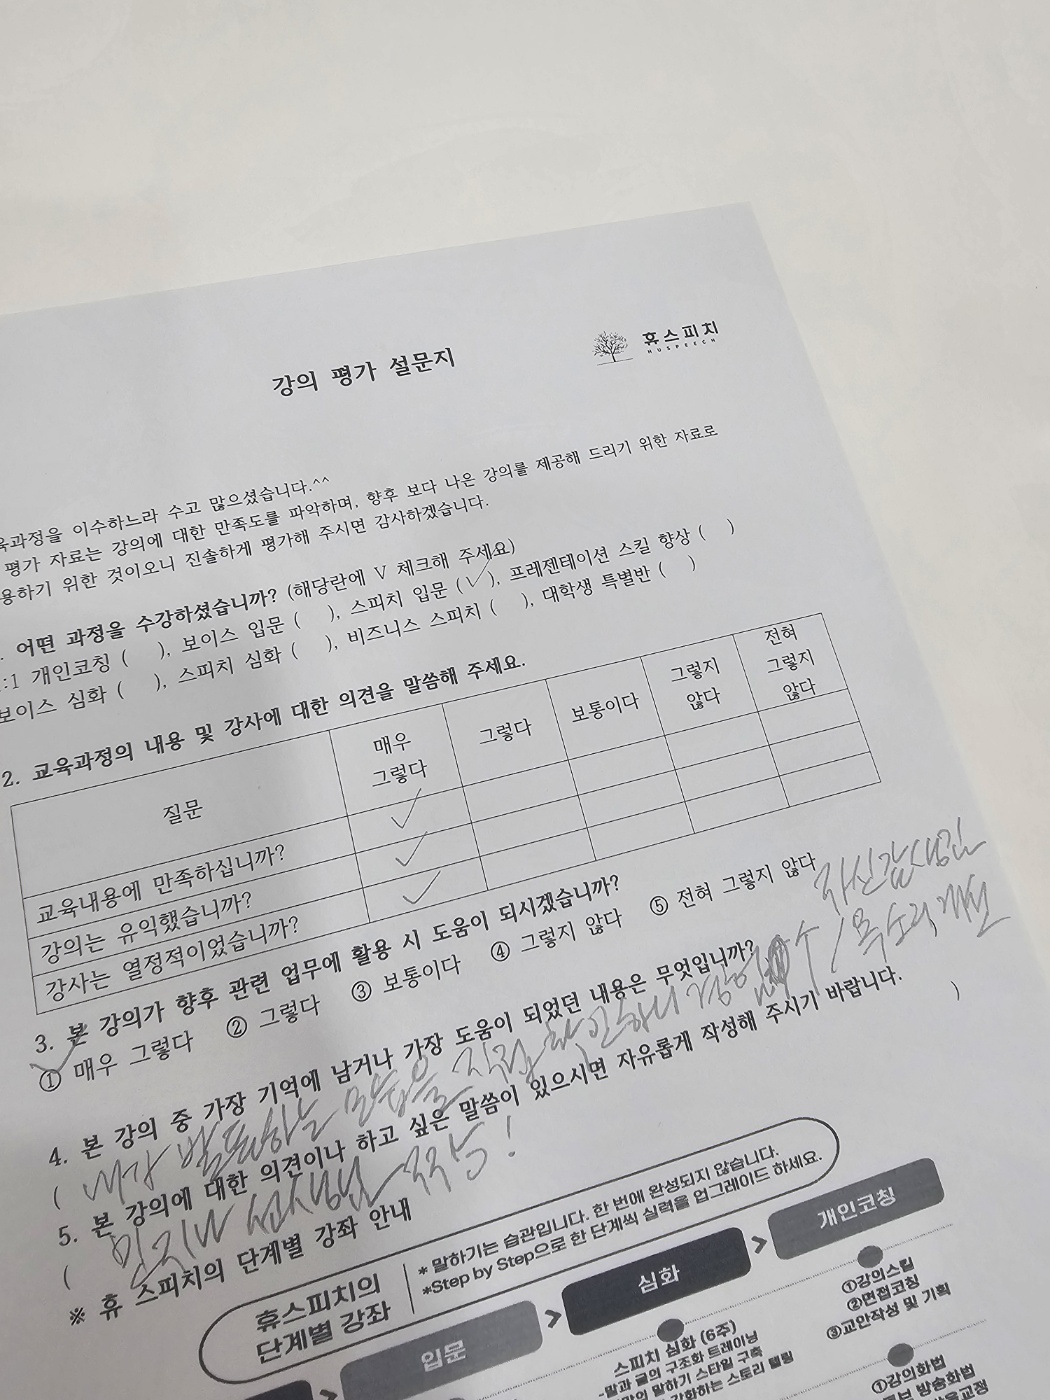 강의 평가 설문지
휴스피치
HUSPEECH
육과정을 이수하느라 수고 많으셨습니다.^^
평가 자료는 강의에 대한 만족도를 파악하며, 향후 보다 나은 강의를 제공해 드리기 위한 자료로
용하기 위한 것이오니 진솔하게 평가해 주시면 감사하겠습니다.
. 어떤 과정을 수강하셨습니까? (해당란에 V 체크해 주세요)
:1 개인코칭 ( ), 보이스 입문 ( ), 스피치 입문 (✓), 프레젠테이션 스킬 향상 ( )
보이스 심화 ( ), 스피치 심화 ( ), 비즈니스 스피치 ( ), 대학생 특별반 ( )
2. 교육과정의 내용 및 강사에 대한 의견을 말씀해 주세요.
질문 매우 그렇다 그렇다 보통이다 그렇지 않다 전혀 그렇지 않다
교육내용에 만족하십니까? ✓
강의는 유익했습니까? ✓
강사는 열정적이었습니까? ✓
3. 본 강의가 향후 관련 업무에 활용 시 도움이 되시겠습니까?
① 매우 그렇다 ② 그렇다 ③ 보통이다 ④ 그렇지 않다 ⑤ 전혀 그렇지 않다
4. 본 강의 중 가장 기억에 남거나 가장 도움이 되었던 내용은 무엇입니까?
( 내가 발표하는 모습을 직접 확인하니 / 목소리 개선 )
자신감 생김
5. 본 강의에 대한 의견이나 하고 싶은 말씀이 있으시면 자유롭게 작성해 주시기 바랍니다.
( 민지나 선생님 최고!
※ 휴 스피치의 단계별 강좌 안내
휴스피치의
단계별 강좌
* 말하기는 습관입니다. 한 번에 완성되지 않습니다.
*Step by Step으로 한 단계씩 실력을 업그레이드 하세요.
입문 > 심화 > 개인코칭
스피치 심화 (6주)
-말과 글의 구조화 트레이닝
말하기 스타일 구축
강화하는 스토리 텔링
①강의스킬
②면접코칭
③교안작성 및 기획
①강의화법
방송화법